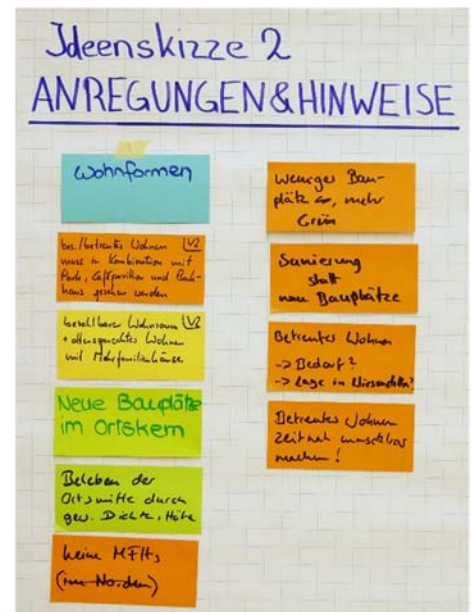 Ideenskizze 2
ANREGUNGEN & HINWEISE
Wohnformen
bes./betreutes Wohnen V2
muss in Kombination mit
Park, Cafépavillon und Park-
haus gesehen werden
bezahlbarer Wohnraum V2
+ altersgerechtes Wohnen
mit Mehrfamilienhäuser
Neue Bauplätze
im Ortskern
Beleben der
Ortsmitte durch
gew. Dichte, Höhe
keine MFHs
(im Norden)
weniger Bau-
plätze, mehr
Grün
Sanierung
statt
neue Bauplätze
Betreutes Wohnen
-> Bedarf?
-> Lage in
Betreutes Wohnen
zeitnah umsetzbar
machen!